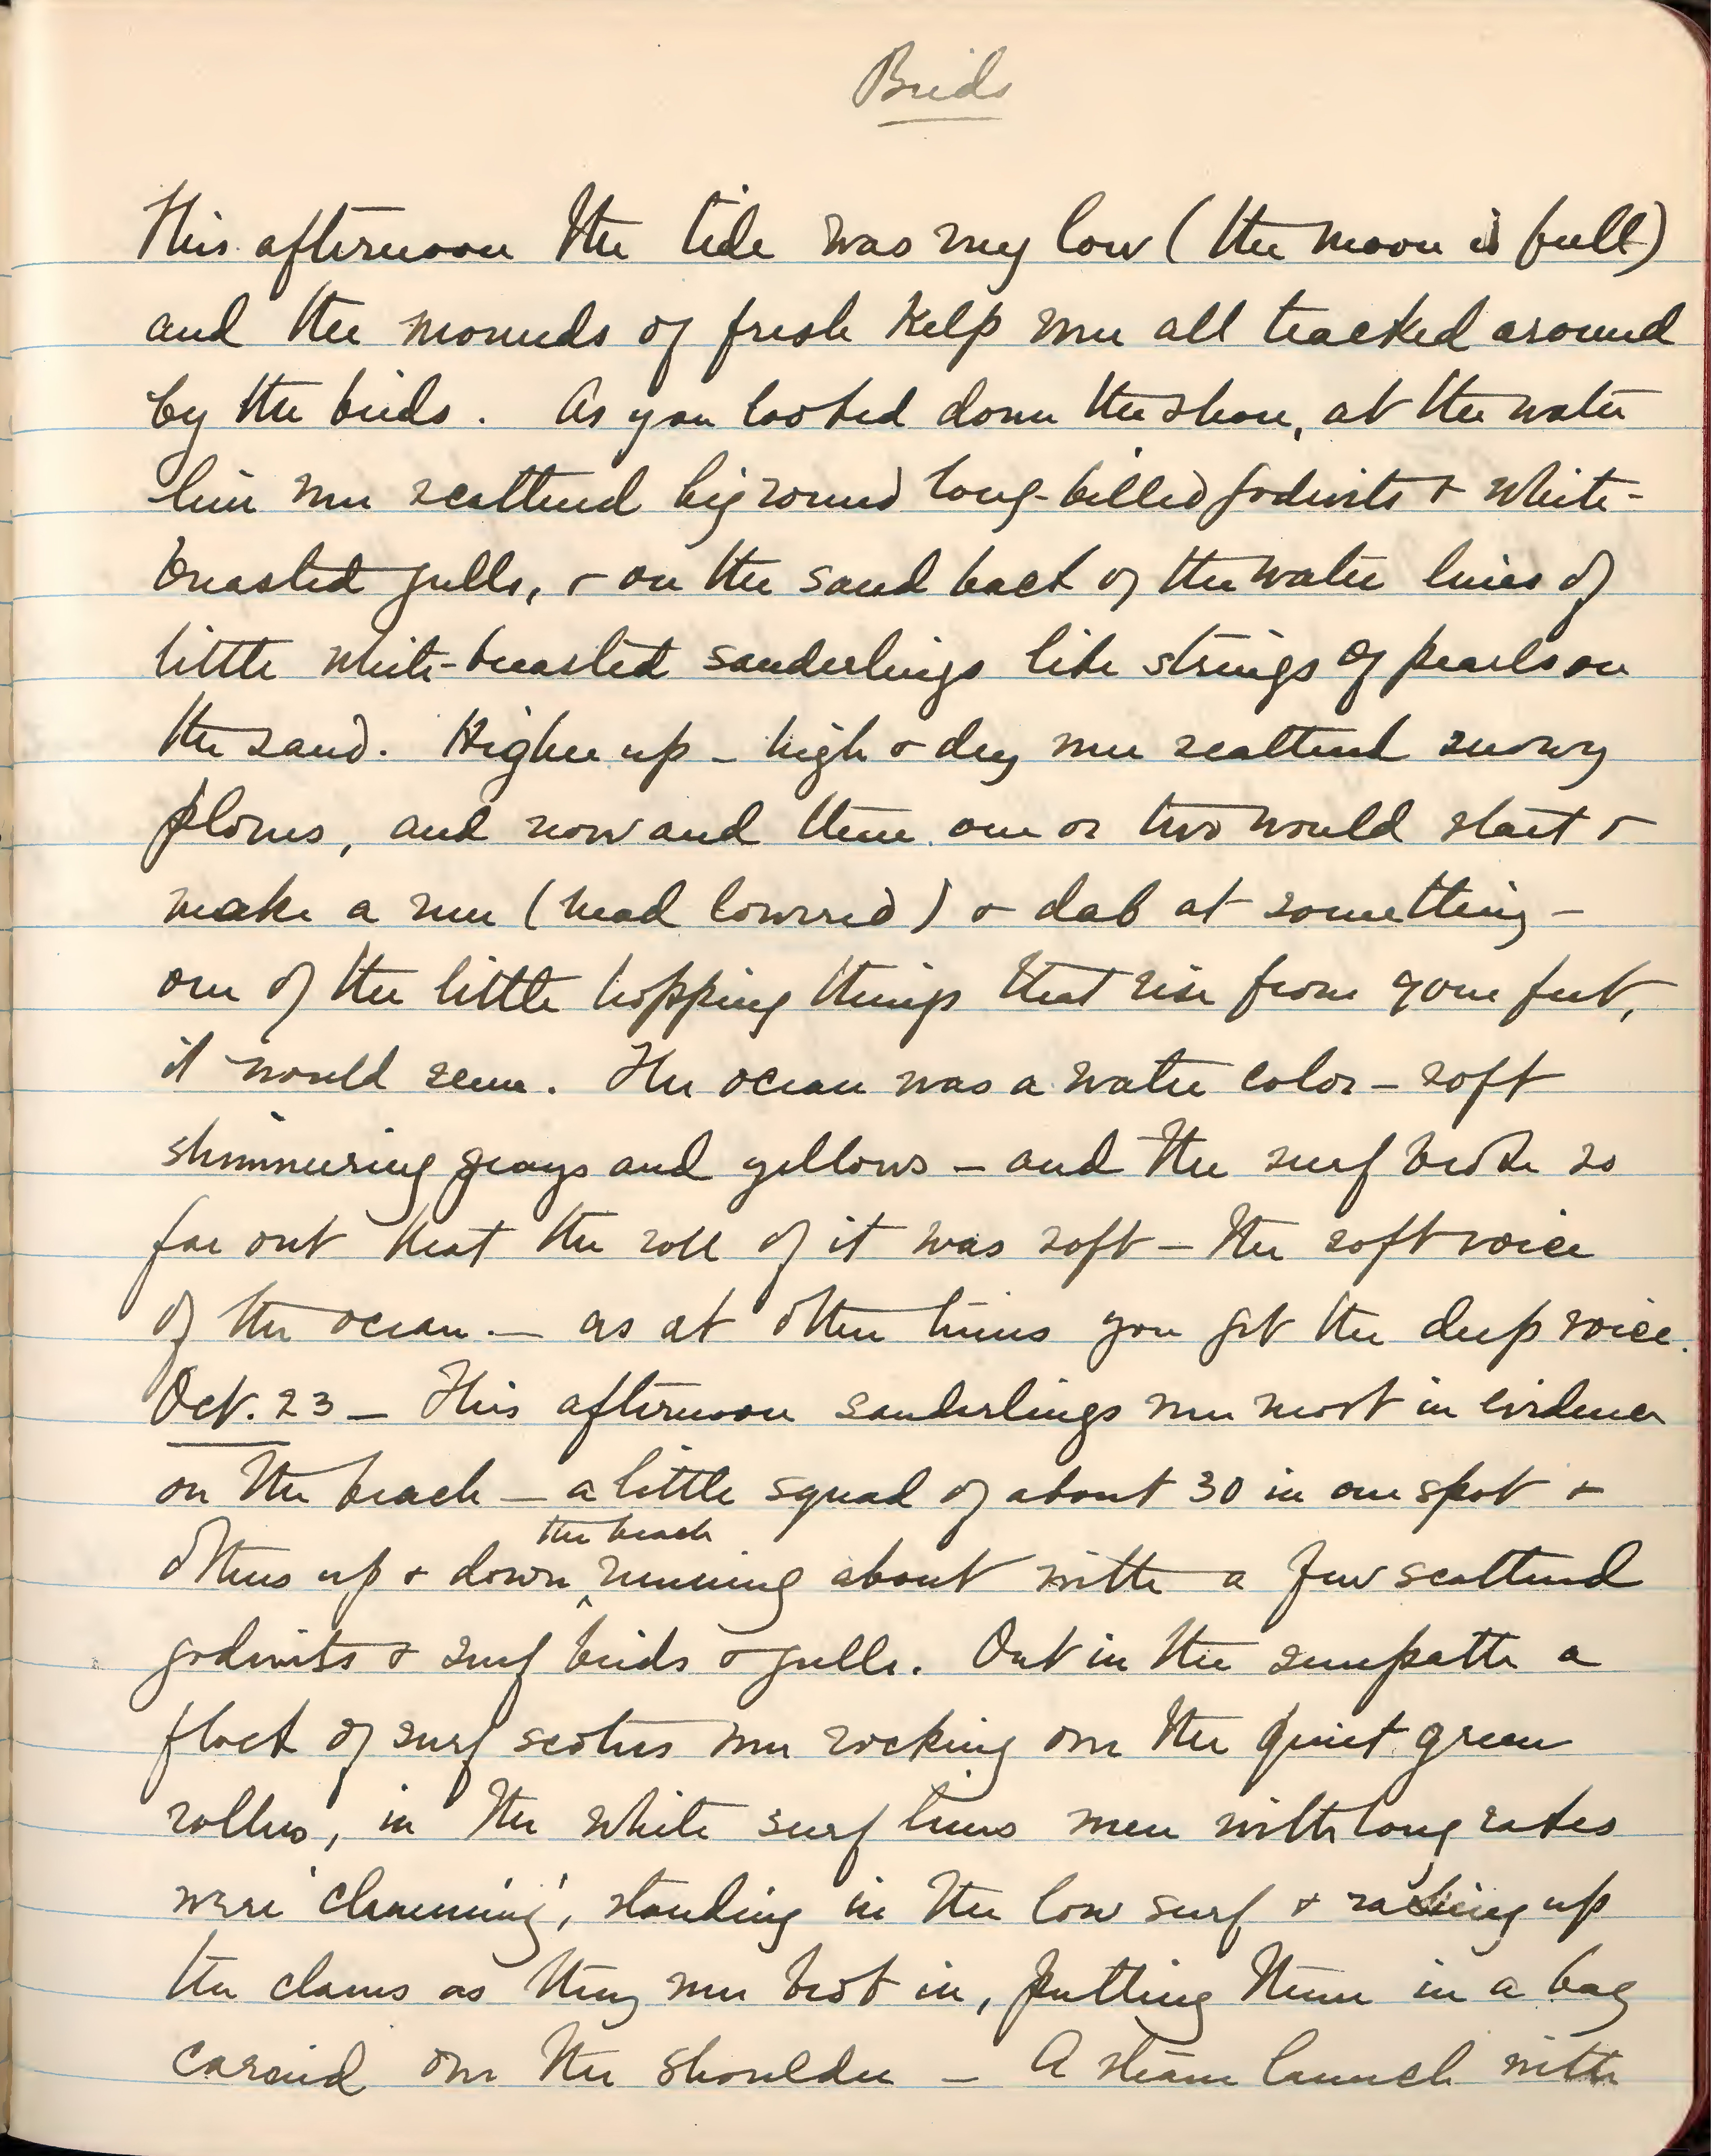 Birds
This afternoon the tide was very low (the moon is full)
and the mounds of fresh kelp were all tracked around
by the birds. As you looked down the shore, at the water
line were scattered big round long-billed godwits & white-
breasted gulls, & on the sand back of the water lines of
little white-breasted sanderlings like strings of pearls on
the sand. Higher up - high & dry were scattered snowy
plovers, and now and then one or two would start &
make a run (head lowered) & dab at something -
one of the little hopping things that rise from your feet,
it would seem. The ocean was a water color - soft
shimmering grays and yellows - and the surf broke so
far out that the roll of it was soft - the soft voice
of the ocean. - as at other times you get the deep voice.
Oct. 23 - This afternoon sanderlings were most in evidence
on the beach - a little squad of about 30 in one spot &
the beach
others up & down ^ running about with a few scattered
godwits & surf birds & gulls. Out in the sunpath a
flock of surf scoters were rocking over the quiet green
rollers, in the white surf lines men with long rakes
were 'clamming', standing in the low surf & raking up
the clams as they were brot in, putting them in a bag
carried over the shoulder - A steam launch with